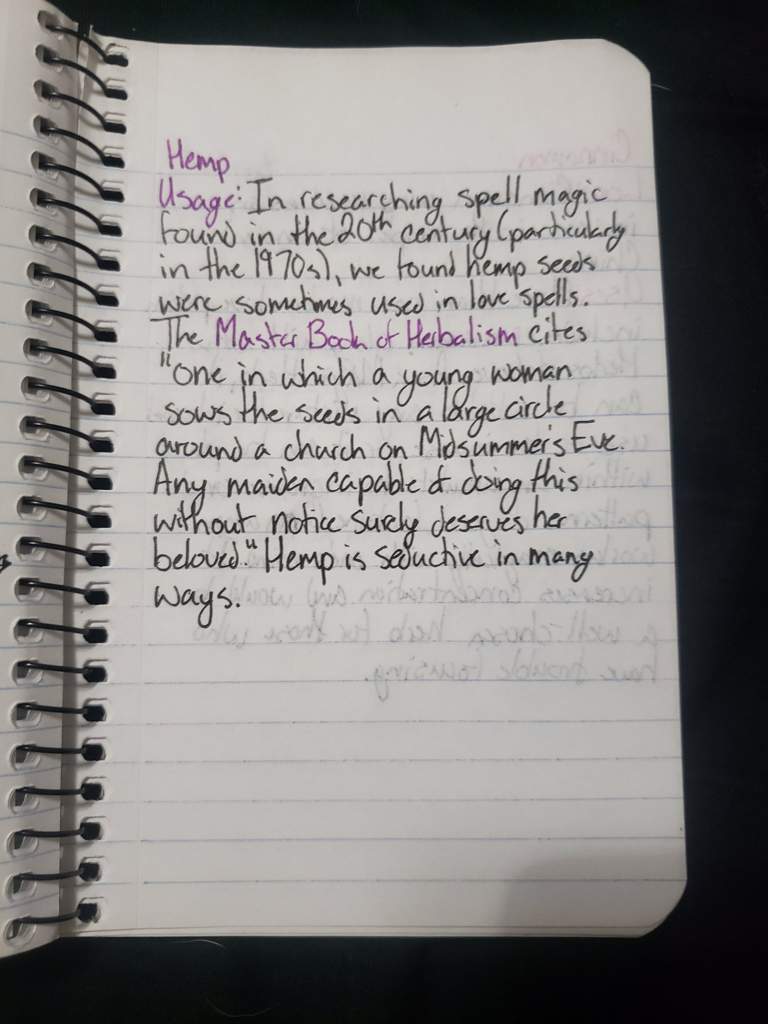 Hemp
Usage: In researching spell magic
found in the 20th century (particularly
in the 1970s), we found hemp seeds
were sometimes used in love spells.
The Master Book of Herbalism cites
"One in which a young woman
sows the seeds in a large circle
around a church on Midsummer's Eve.
Any maiden capable of doing this
without notice surely deserves her
beloved." Hemp is seductive in many
ways.